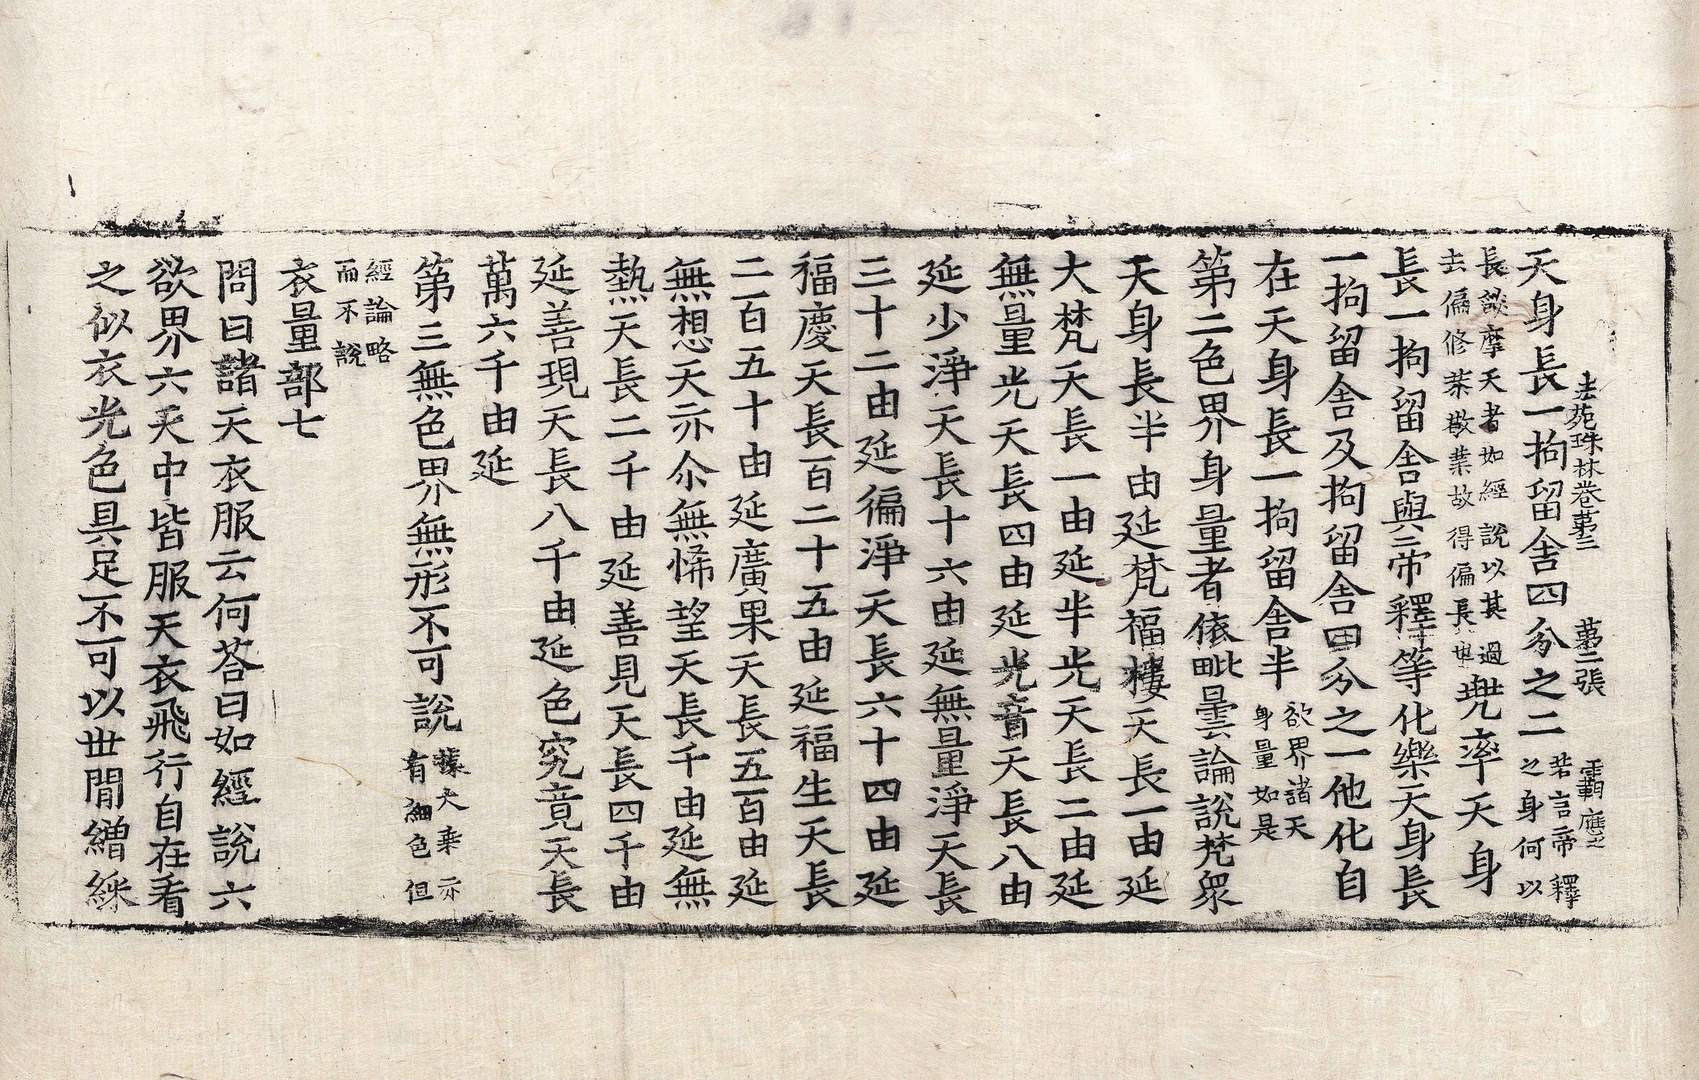 天身長一拘留舍四分之二若言帝釋之身何以
法苑珠林卷第三　第二張　霸　應之
長談摩天者如經說以其過去偏修業敬業故得偏長也兜率天身
長一拘留舍與三帝釋等化樂天身長
一拘留舍及拘留舍四分之一他化自
在天身長一拘留舍半欲界諸天身量如是
第二色界身量者依毗曇論說梵眾
天身長半由延梵福樓天長一由延
大梵天長一由延半光天長二由延
無量光天長四由延光音天長八由
延少淨天長十六由延無量淨天長
三十二由延徧淨天長六十四由延
福慶天長百二十五由延福生天長
二百五十由延廣果天長五百由延
無想天亦尒無悕望天長千由延無
熱天長二千由延善見天長四千由
延善現天長八千由延色究竟天長
萬六千由延
第三無色界無形不可說據大乘亦有細色但
經論略而不說
衣量部七
問曰諸天衣服云何荅曰如經說六
欲界六天中皆服天衣飛行自在看
之似衣光色具足不可以世間繒綵